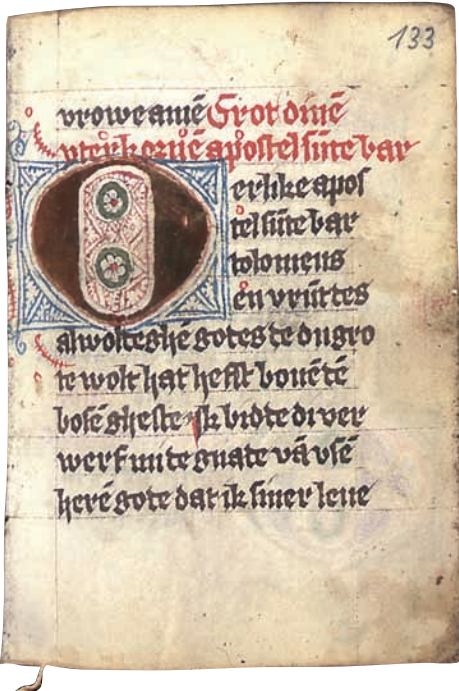 133
vrowe amē Grot dinē
vterkornē apostel sinte bar
erlike apos
tel sūte bar
tolomeus
en vrūt tes
alwolteghē gotes te du gro
te wolt hat hefst bouē tē
bosē gheste ik bidte di ver
werf mi te gnate vā vsē
herē gote dat ik siner leue